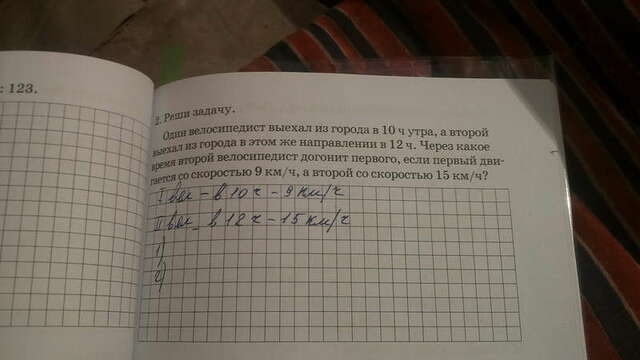 : 123.
2. Реши задачу.
Один велосипедист выехал из города в 10 ч утра, а второй
выехал из города в этом же направлении в 12 ч. Через какое
время второй велосипедист догонит первого, если первый дви-
гается со скоростью 9 км/ч, а второй со скоростью 15 км/ч?
I вел – в 10 ч – 9 км/ч
II вел – в 12 ч – 15 км/ч
1)
2)